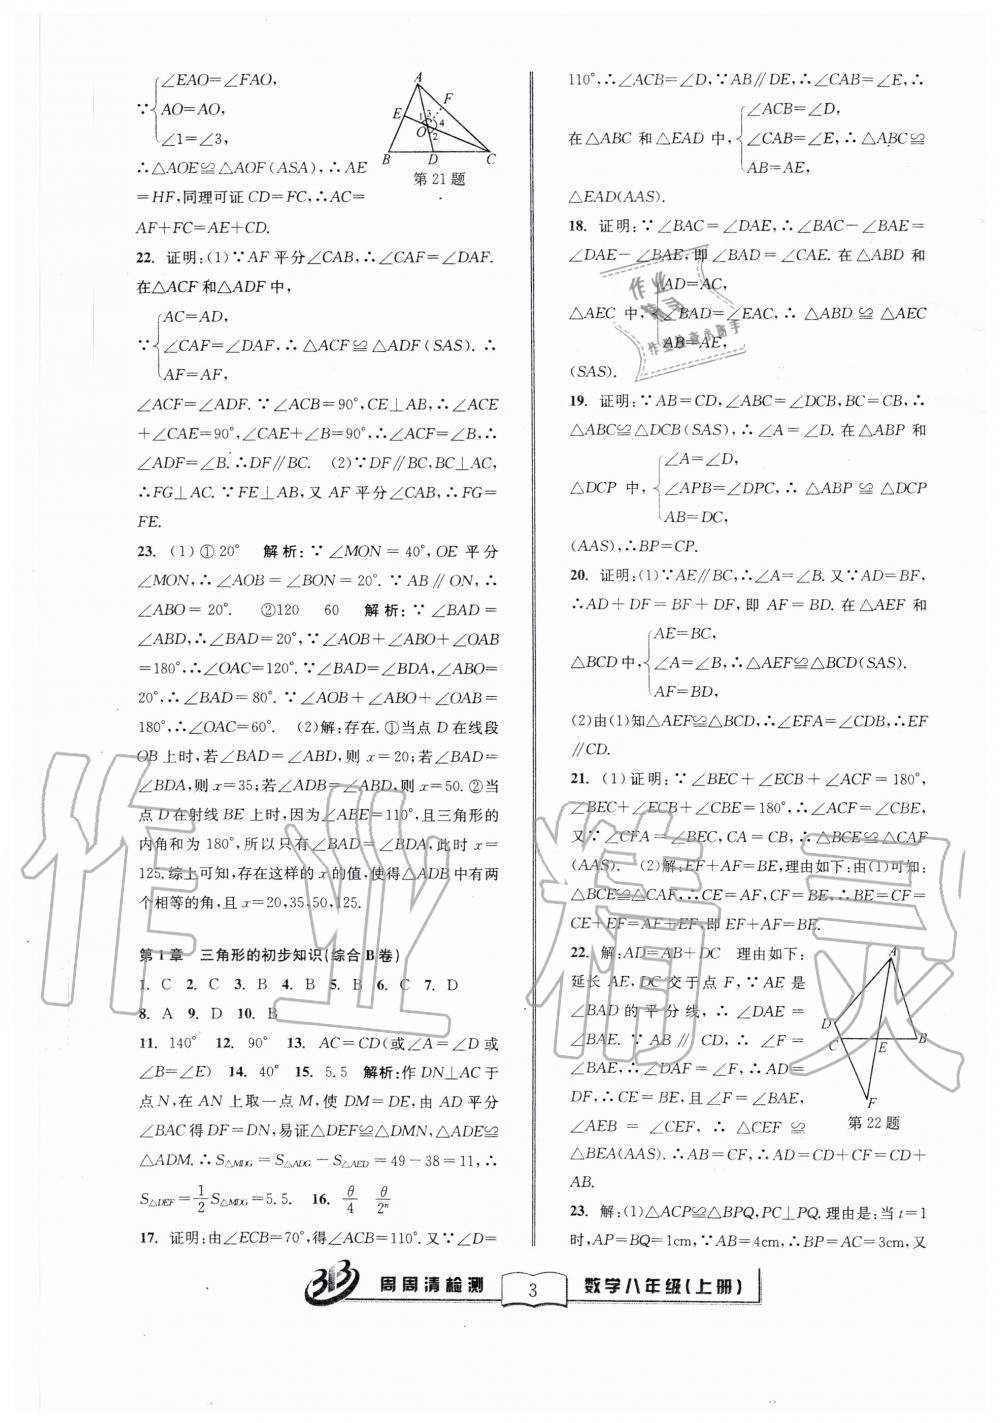 ∠EAO=∠FAO,
∵ AO=AO,
∠1=∠3,
∴△AOE≌△AOF(ASA),∴AE
=HF,同理可证 CD=FC,∴AC=
AF+FC=AE+CD.
A
F
E
1 3
4
O
2
B D C
第21题
22. 证明:(1)∵AF 平分∠CAB,∴∠CAF=∠DAF.
在△ACF 和△ADF 中,
AC=AD,
∵ ∠CAF=∠DAF,∴△ACF≌△ADF(SAS).∴
AF=AF,
∠ACF=∠ADF.∵∠ACB=90°,CE⊥AB,∴∠ACE
+∠CAE=90°,∠CAE+∠B=90°,∴∠ACF=∠B,∴
∠ADF=∠B.∴DF∥BC. (2)∵DF∥BC,BC⊥AC,
∴FG⊥AC.∵FE⊥AB,又 AF 平分∠CAB,∴FG=
FE.
23. (1)①20° 解析:∵∠MON=40°,OE 平分
∠MON,∴∠AOB=∠BON=20°.∵AB∥ON,∴
∠ABO=20°. ②120 60 解析:∵∠BAD=
∠ABD,∴∠BAD=20°,∵∠AOB+∠ABO+∠OAB
=180°,∴∠OAC=120°.∵∠BAD=∠BDA,∠ABO=
20°,∴∠BAD=80°.∵∠AOB+∠ABO+∠OAB=
180°,∴∠OAC=60°. (2)解:存在.①当点 D 在线段
OB 上时,若∠BAD=∠ABD,则 x=20;若∠BAD=
∠BDA,则 x=35;若∠ADB=∠ABD,则 x=50.②当
点 D 在射线 BE 上时,因为∠ABE=110°,且三角形的
内角和为 180°,所以只有∠BAD=∠BDA,此时 x=
125.综上可知,存在这样的 x 的值,使得△ADB 中有两
个相等的角,且 x=20,35,50,125.
第1章 三角形的初步知识(综合B卷)
1. C 2. C 3. B 4. B 5. B 6. C 7. D
8. A 9. D 10. B
11. 140° 12. 90° 13. AC=CD(或∠A=∠D 或
∠B=∠E) 14. 40° 15. 5.5 解析:作 DN⊥AC 于
点 N,在 AN 上取一点 M,使 DM=DE,由 AD 平分
∠BAC 得 DF=DN,易证△DEF≌△DMN,△ADE≌
△ADM.∴S△MDG=S△ADG-S△AED=49-38=11,∴
S△DEF=1/2 S△MDG=5.5. 16. θ/4 θ/2ⁿ
17. 证明:由∠ECB=70°,得∠ACB=110°.又∵∠D=
110°,∴∠ACB=∠D,∵AB∥DE,∴∠CAB=∠E,∴
∠ACB=∠D,
在△ABC 和△EAD 中, ∠CAB=∠E,∴△ABC≌
AB=AE,
△EAD(AAS).
18. 证明:∵∠BAC=∠DAE,∴∠BAC-∠BAE=
∠DAE-∠BAE,即∠BAD=∠CAE.在△ABD 和
AD=AC,
△AEC 中, ∠BAD=∠EAC,∴△ABD≌△AEC
AB=AE,
(SAS).
19. 证明:∵AB=CD,∠ABC=∠DCB,BC=CB,∴
△ABC≌△DCB(SAS),∴∠A=∠D.在△ABP 和
∠A=∠D,
△DCP 中, ∠APB=∠DPC,∴△ABP≌△DCP
AB=DC,
(AAS),∴BP=CP.
20. 证明:(1)∵AE∥BC,∴∠A=∠B.又∵AD=BF,
∴AD+DF=BF+DF,即 AF=BD.在△AEF 和
AE=BC,
△BCD 中, ∠A=∠B,∴△AEF≌△BCD(SAS).
AF=BD,
(2)由(1)知△AEF≌△BCD,∴∠EFA=∠CDB,∴EF
∥CD.
21. (1)证明:∵∠BEC+∠ECB+∠ACF=180°,
∠BEC+∠ECB+∠CBE=180°,∴∠ACF=∠CBE,
又∵∠CFA=∠BEC,CA=CB,∴△BCE≌△CAF
(AAS). (2)解:EF+AF=BE,理由如下:由(1)可知:
△BCE≌△CAF,∴CE=AF,CF=BE,∴BE=CF=
CE+EF=AF+EF,即 EF+AF=BE.
22. 解:AD=AB+DC 理由如下:
延长 AE,DC 交于点 F,∵AE 是
∠BAD 的平分线,∴∠DAE=
∠BAE.∵AB∥CD,∴∠F=
∠BAE,∴∠DAF=∠F,∴AD=
DF,∵CE=BE,且∠F=∠BAE,
∠AEB=∠CEF,∴△CEF≌
△BEA(AAS).∴AB=CF,∴AD=CD+CF=CD+
AB.
A
D
C E B
F
第22题
23. 解:(1)△ACP≌△BPQ,PC⊥PQ.理由是:当 t=1
时,AP=BQ=1cm,∵AB=4cm,∴BP=AC=3cm,又
周周清检测 3 数学八年级(上册)
作业
精灵
作业检查小助手
作业精灵